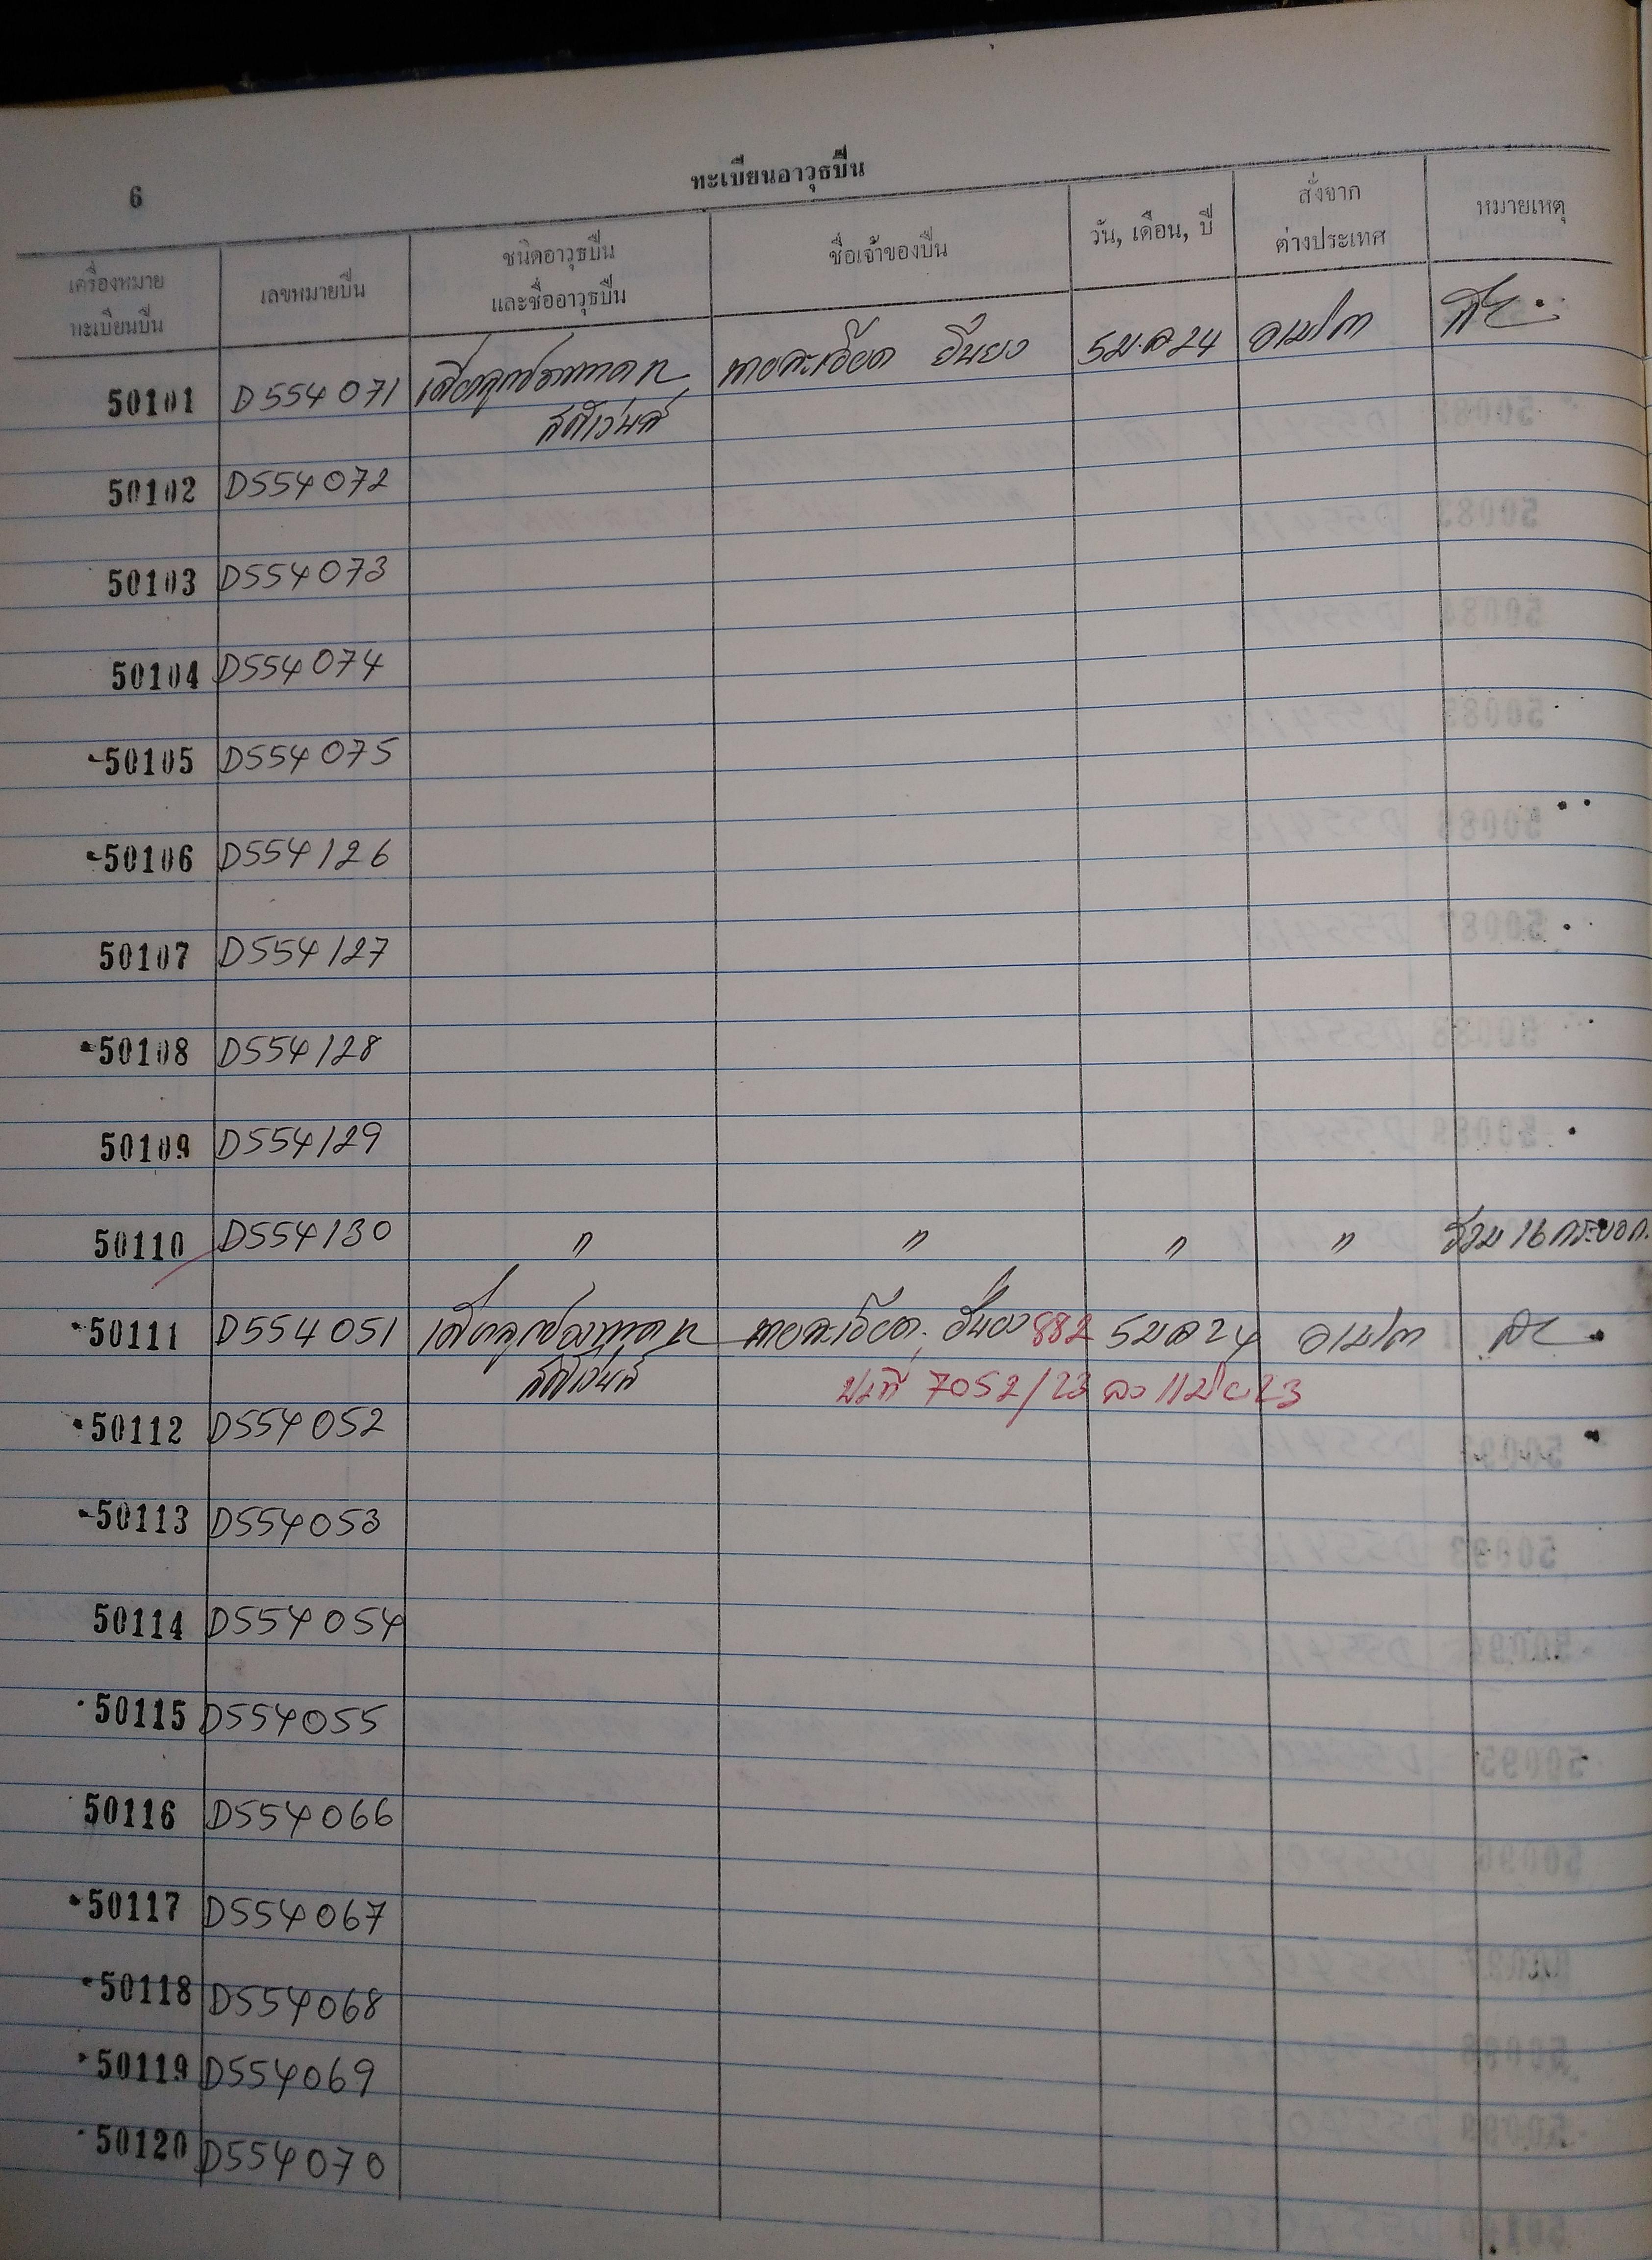 6
ทะเบียนอาวุธปืน
เครื่องหมาย
ทะเบียนปืน
เลขหมายปืน
ชนิดอาวุธปืน
และชื่ออาวุธปืน
ชื่อเจ้าของปืน
วัน, เดือน, ปี
สั่งจาก
ต่างประเทศ
หมายเหตุ
50101 D554071 5 ม.ค 24
50102 D554072
50103 D554073
50104 D554074
50105 D554075
50106 D554126
50107 D554127
50108 D554128
50109 D554129
50110 D554130 " " " " รวม 16 กระบอก.
50111 D554051 882 5 ม ค 24
7052/23
50112 D554052
50113 D554053
50114 D554054
50115 D554055
50116 D554066
50117 D554067
50118 D554068
50119 D554069
50120 D554070